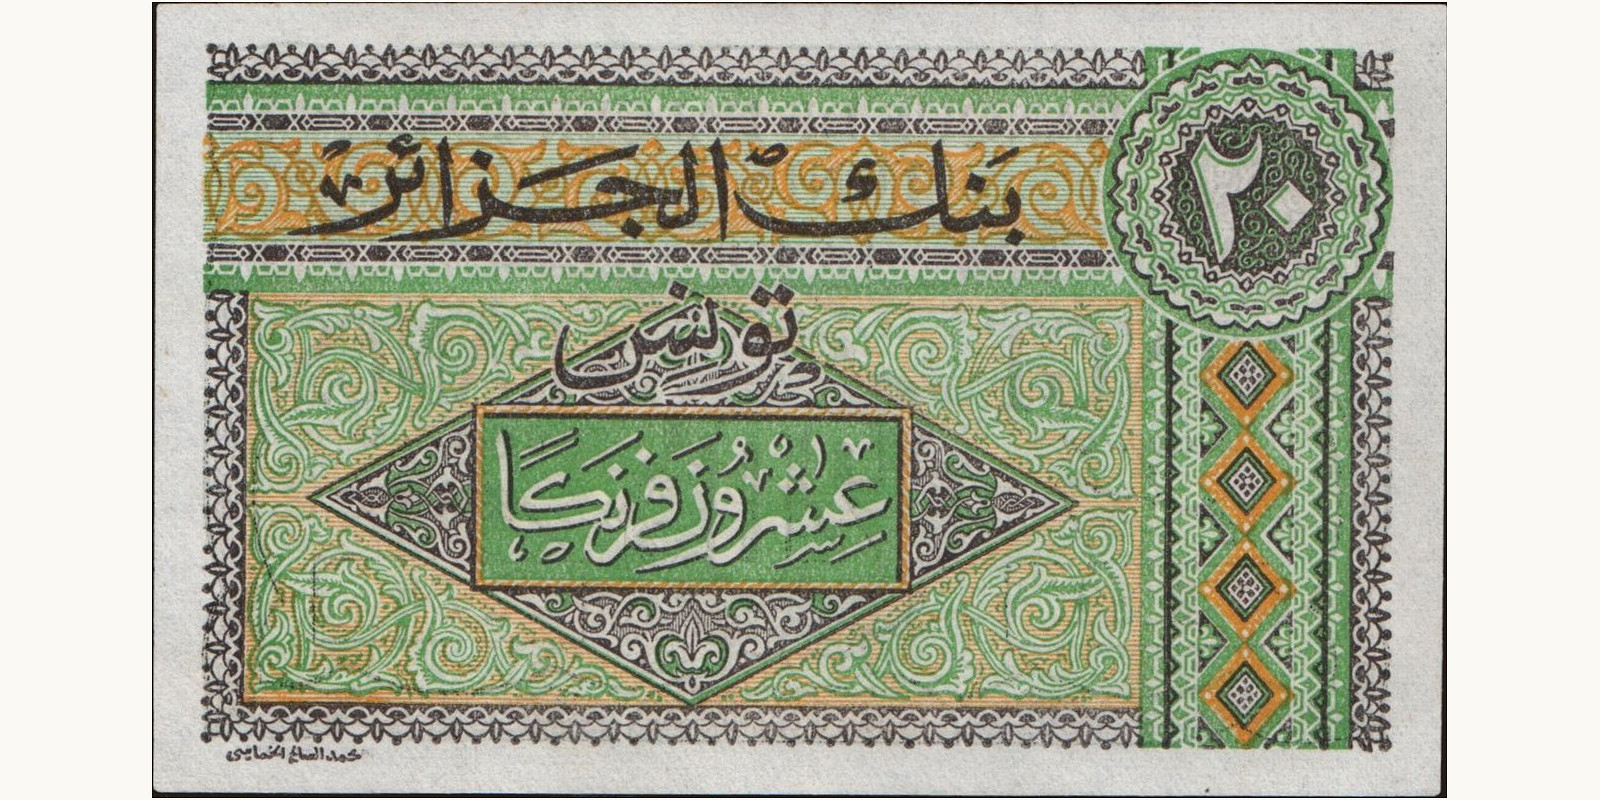 بَنْك الجَزائر
٢٠
تونس
عِشْرُونَ فَرَنْكًا
محمد الصالح الخماسي